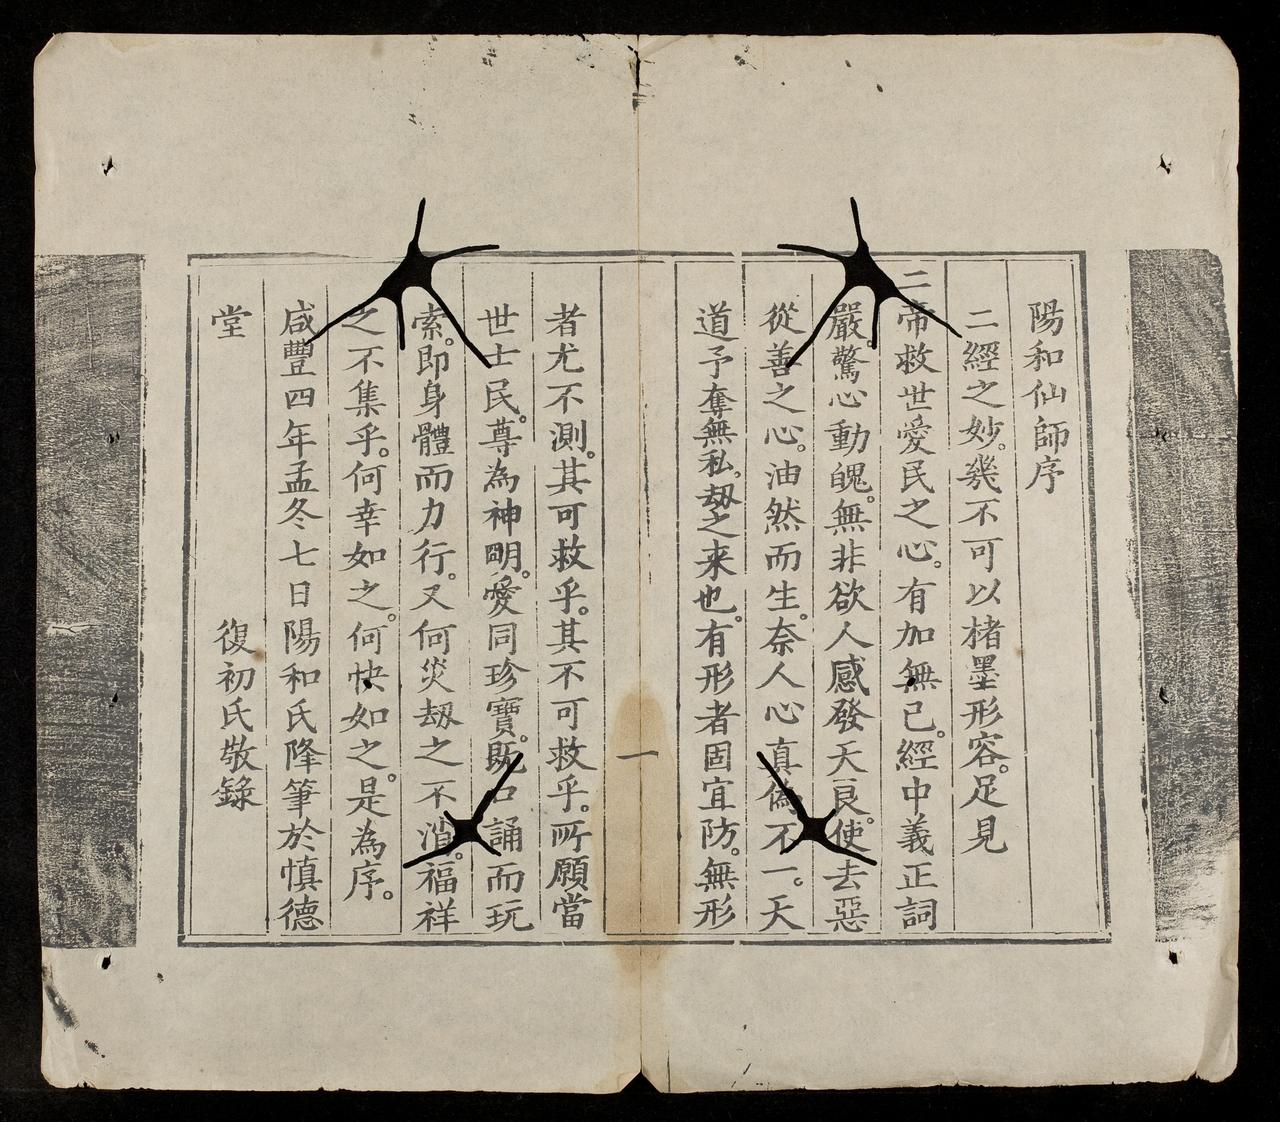 陽和仙師序
二經之妙。幾不可以楮墨形容。足見
二帝救世愛民之心。有加無已。經中義正詞
嚴。驚心動魄。無非欲人感發天良。使去惡
從善之心。油然而生。奈人心真偽不一。天
道予奪無私。刼之来也。有形者固宜防。無形
一
者尤不測。其可救乎。其不可救乎。所願當
世士民。尊為神明。愛同珍寶。既口誦而玩
索。即身體而力行。又何災刼之不消。福祥
之不集乎。何幸如之。何快如之。是為序。
咸豐四年孟冬七日陽和氏降筆於慎德
堂
復初氏敬錄